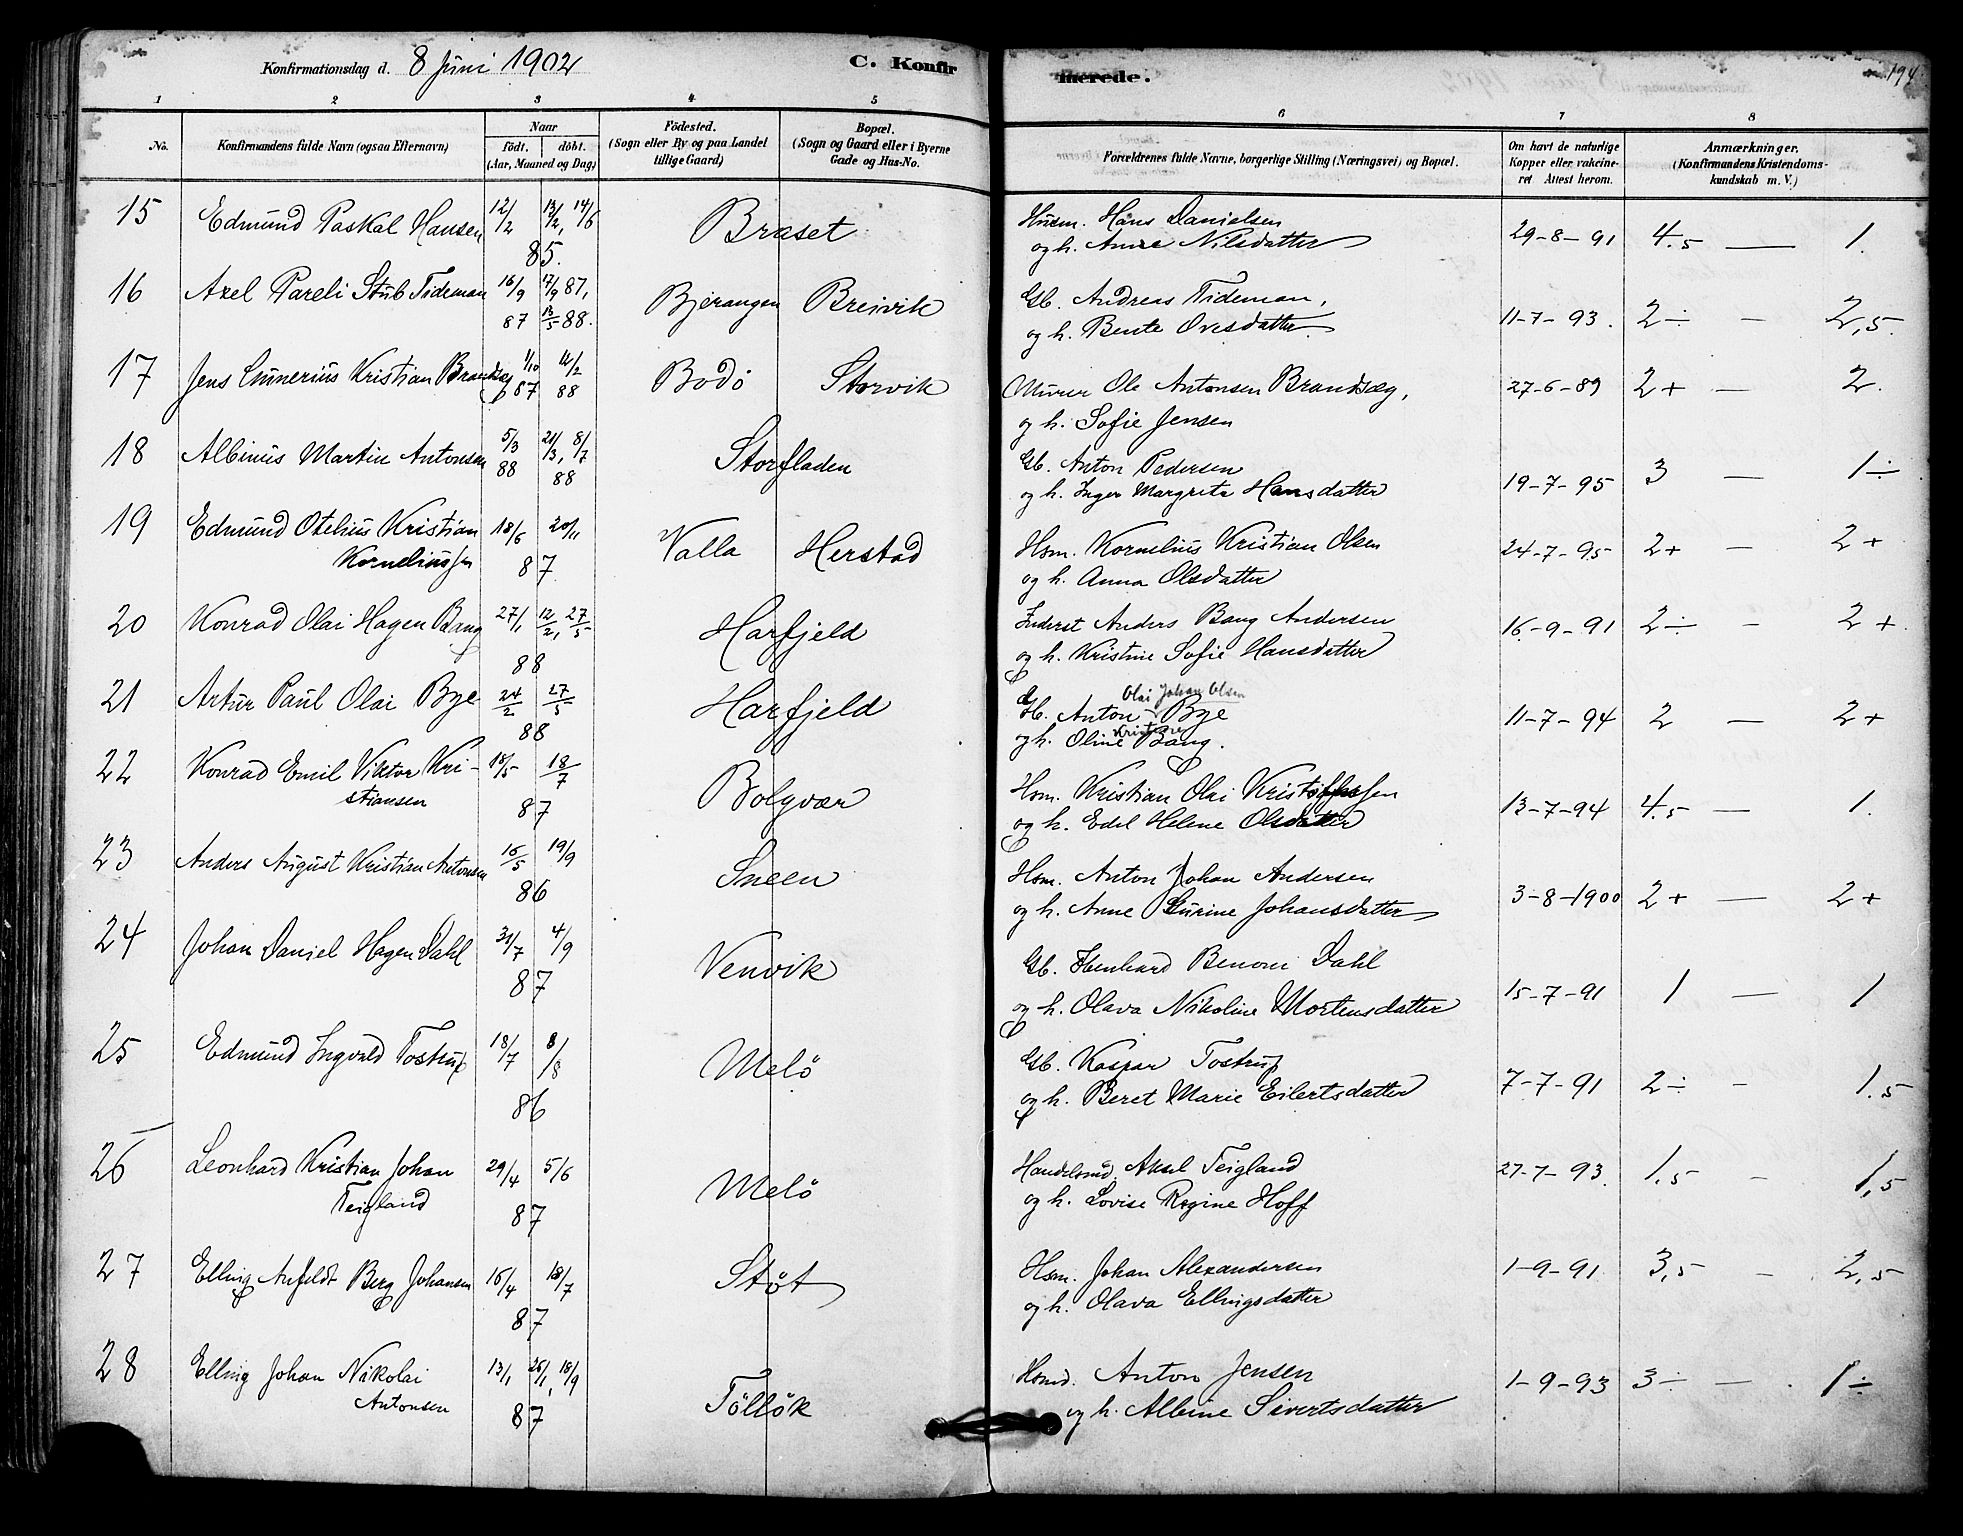 Konfirmationsdag d. 8 Juni 1902
C. Konfirmerede.
194
1 2 3 4 5 6 7 8
No.
Konfirmandens fulde Navn (ogsaa Efternavn)
Naar
födt. döbt.
(Aar, Maaned og Dag)
Födested.
(Sogn eller By og paa Landet
tillige Gaard)
Bopæl.
(Sogn og Gaard eller i Byerne
Gade og Hus-No.
Forældrenes fulde Navne, borgerlige Stilling (Næringsvei) og Bopæl.
Om havt de naturlige
Kopper eller vakcine-
ret Attest herom.
Anmærkninger.
(Konfirmandens Kristendoms-
kundskab m. V.)
15 Edmund Paskal Hansen 12/2 13/2, 14/6 Braset Husm. Hans Danielsen 29-8-91 4.5 — 1.
85. og h. Anne Nilsdatter
16 Axel Pareli Stub Tideman 16/9 17/9 87, Bjerangen Breivik Gb. Andreas Tideman, 11-7-93. 2÷ — 2,5.
87 13/5 88. og h. Bente Ovesdatter
17 Jens Gunerius Kristian Brandsæg 1/10 12/2 Bodö Storvik Murer Ole Antonsen Brandsæg, 27-6-89 2+ — 2.
87 88 og h. Sofie Jensen
18 Albinus Martin Antonsen 5/3 21/3, 8/7 Storfladen Gb. Anton Pedersen 19-7-95 3 — 1÷
88 88 og h. Inger Margrete Hansdatter
19 Edmund Otelius Kristian 18/6 20/11 Valla Herstad Hsm. Kornelius Kristian Olsen 24-7-95 2+ — 2+
Korneliussen 87 og h. Anna Olsdatter
20 Konrad Olai Hagen Bang 27/1 12/2, 27/5 Harfjeld Inderst Anders Bang Andersen 16-9-91 2÷ - 2+
88 og h. Kristine Sofie Hansdatter
21 Artur Paul Olai Bye 24/2 27/5 Harfjeld Olai Johan Olsen
Gb. Anton Bye 11-7-94 2 — 2+
88 og h. Oline Kristine Bang.
22 Konrad Emil Viktor Kri- 18/5 18/7 Bolgvær Hsm. Kristian Olai Kristoffersen 13-7-94 4.5 — 1.
stiansen 87 og h. Edel Helene Olsdatter
23 Anders August Kristian Antonsen 16/5 19/9 Sneen Hsm. Anton Johan Andersen 3-8-1900 2+ — 2+
86 og h. Anne Gurine Johansdatter
24 Johan Daniel Hagen Dahl 31/7 4/9 Venvik Gb. Ibenhard Benoni Dahl 15-7-91 1 — 1
87 og h. Olava Nikoline Mortensdatter
25 Edmund Ingvald Tostrup 18/7 8/8 Melö Gb. Kaspar Tostrup 7-7-91 2÷ - 1.5
86 og h. Beret Marie Eilertsdatter
26 Leonhard Kristian Johan 29/4 5/6 Melö Handelsmd Aksel Teigland 27-7-93. 1.5 - 1,5
Teigland 87 og h. Lovise Regine Hoff
27 Elling Anfeldt Berg Johansen 16/4 18/7 Stöt Hsm. Johan Alexandersen 1-9-91 3,5 - 2,5
87 og h. Olava Ellingsdatter
28 Elling Johan Nikolai 13/1 26/1, 18/9 Töllök Hsmd. Anton Jensen 1-9-93 3÷ — 1÷
Antonsen 87 og h. Albine Sivertsdatter